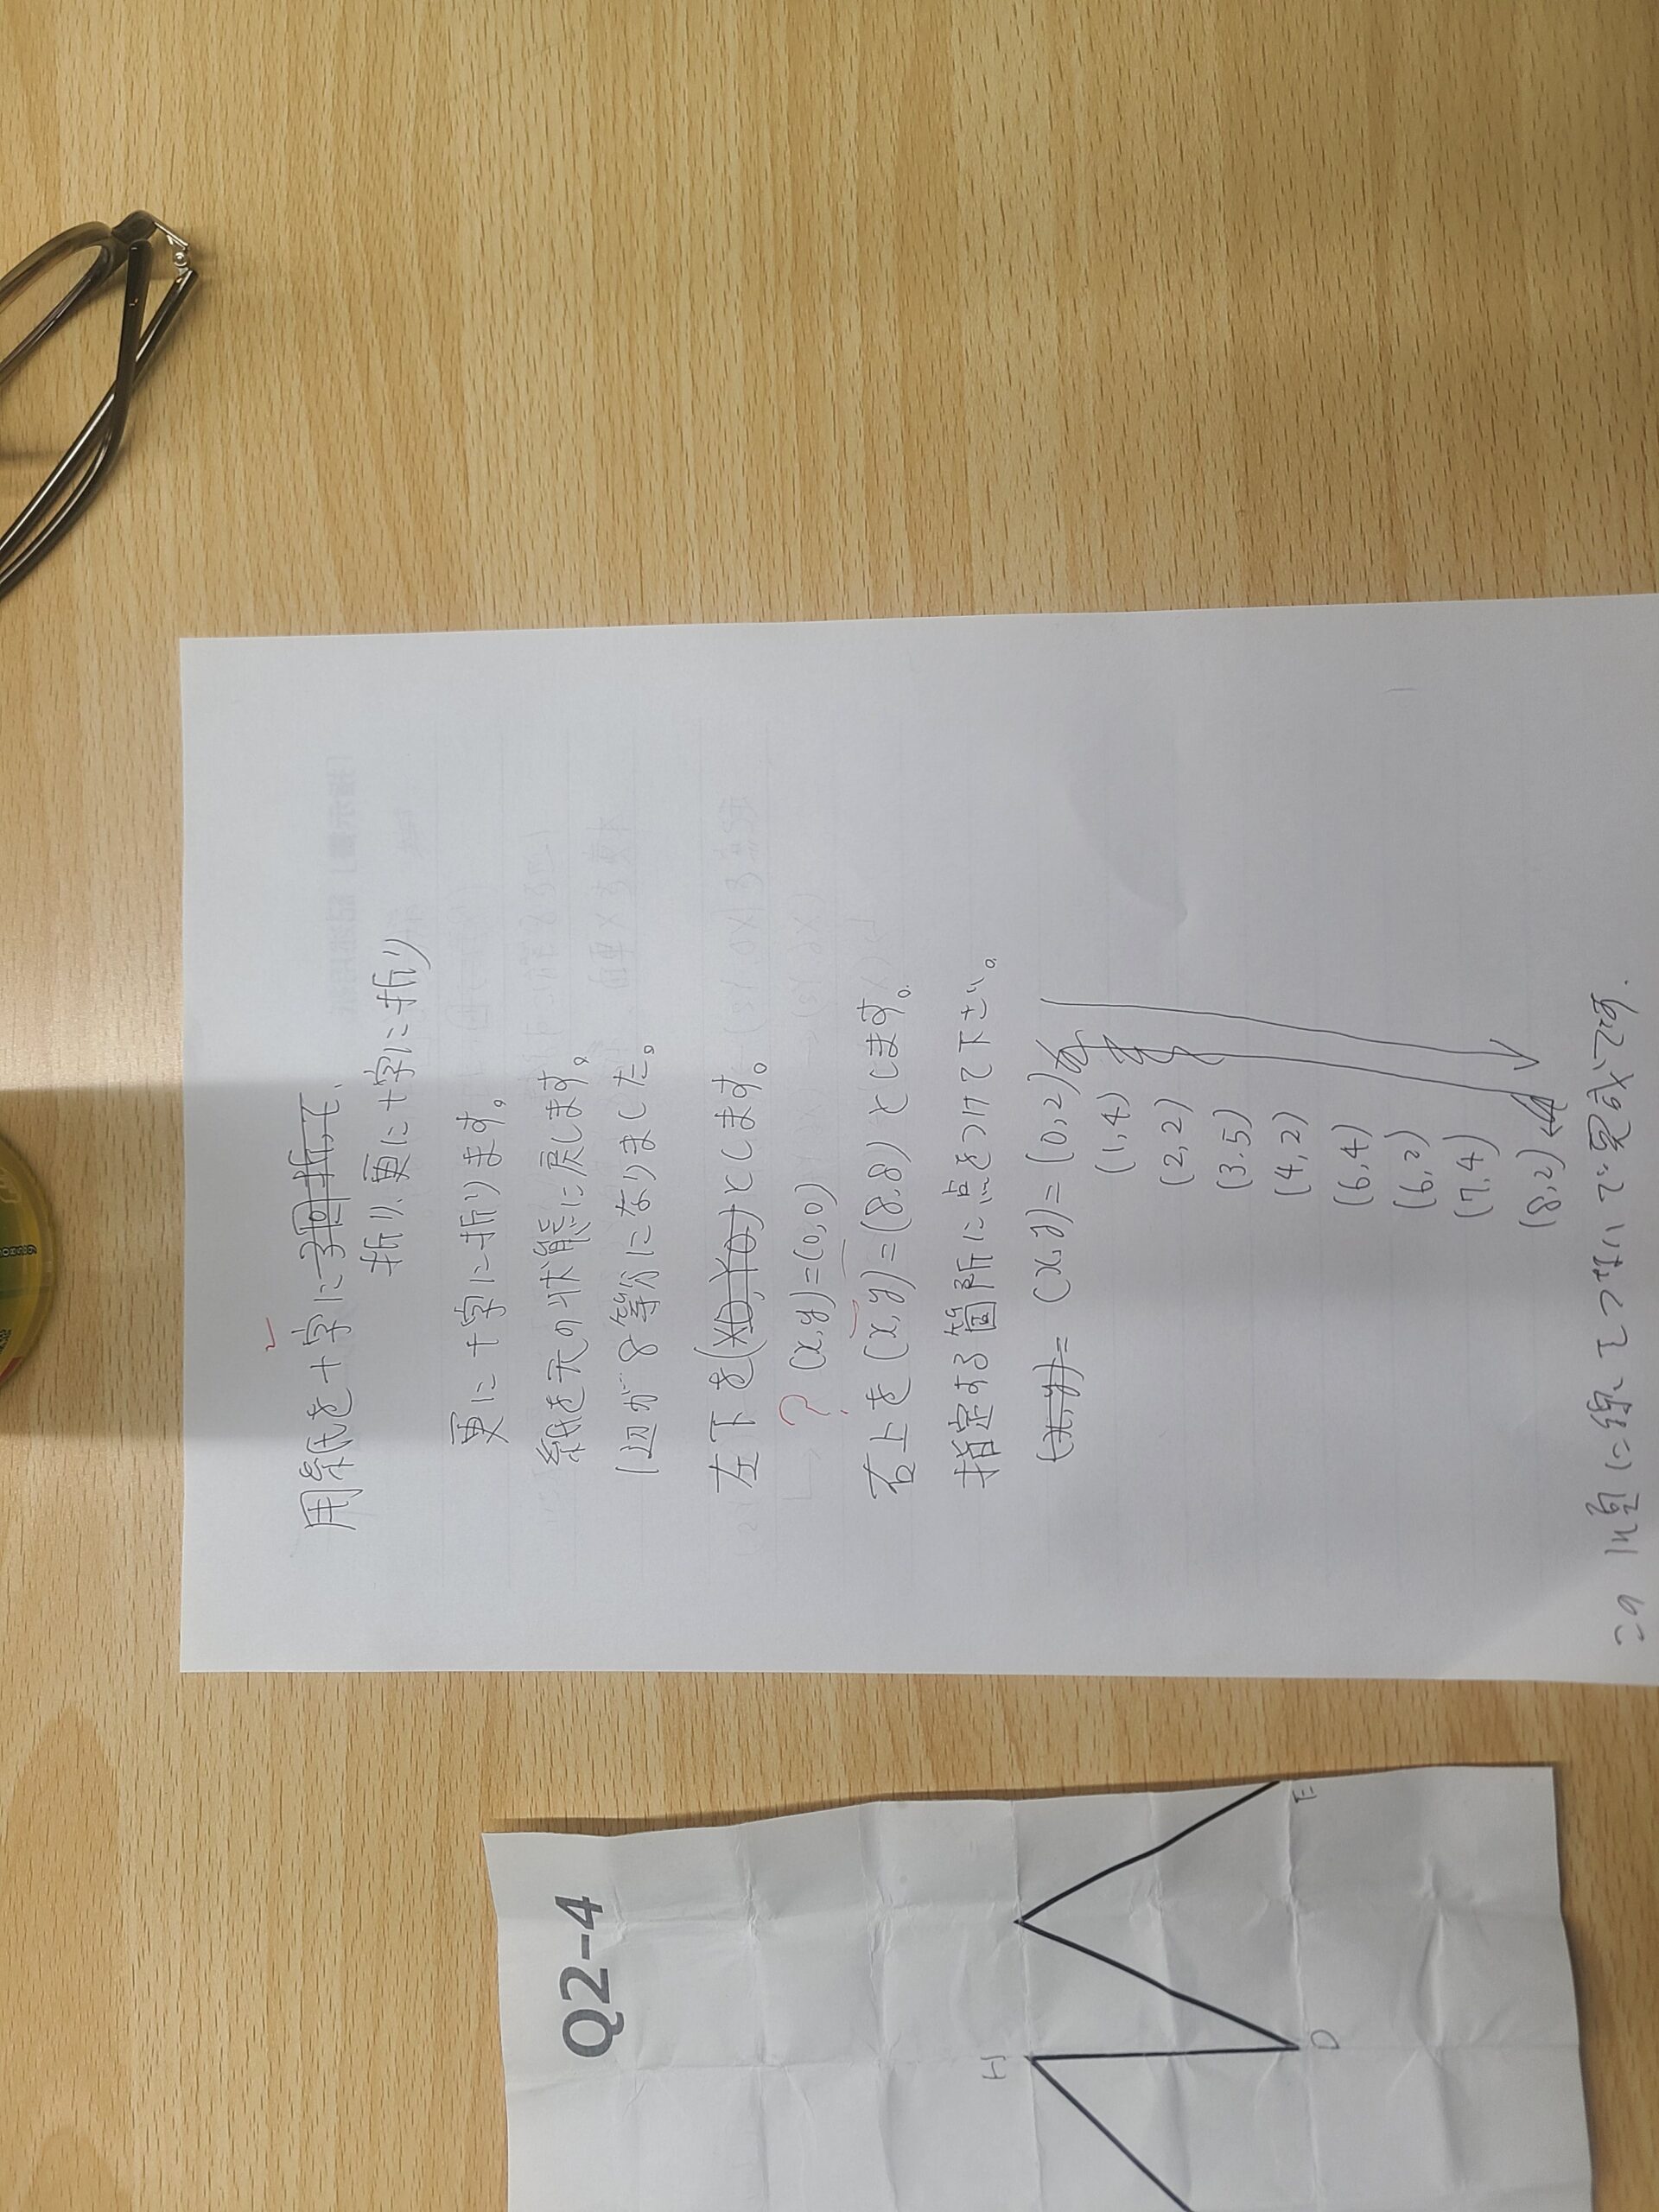 用紙を十字に3回折って、
折り、更に十字に折り
更に十字に折ります。
紙を元の状態に戻します。
1辺が8等分になりました。
左下を(X0,Y0)とします。
? (x,y)=(0,0)
右上を(x,y)=(8,8)とします。
指定する箇所に点をつけて下さい。
(x,y)= (x,y)=(0,2)
(1,4)
(2,2)
(3.5)
(4,2)
(6,4)
(6,2)
(7,4)
(8,2)
この順に線でつないで完成です.
Q2-4
H
D
E